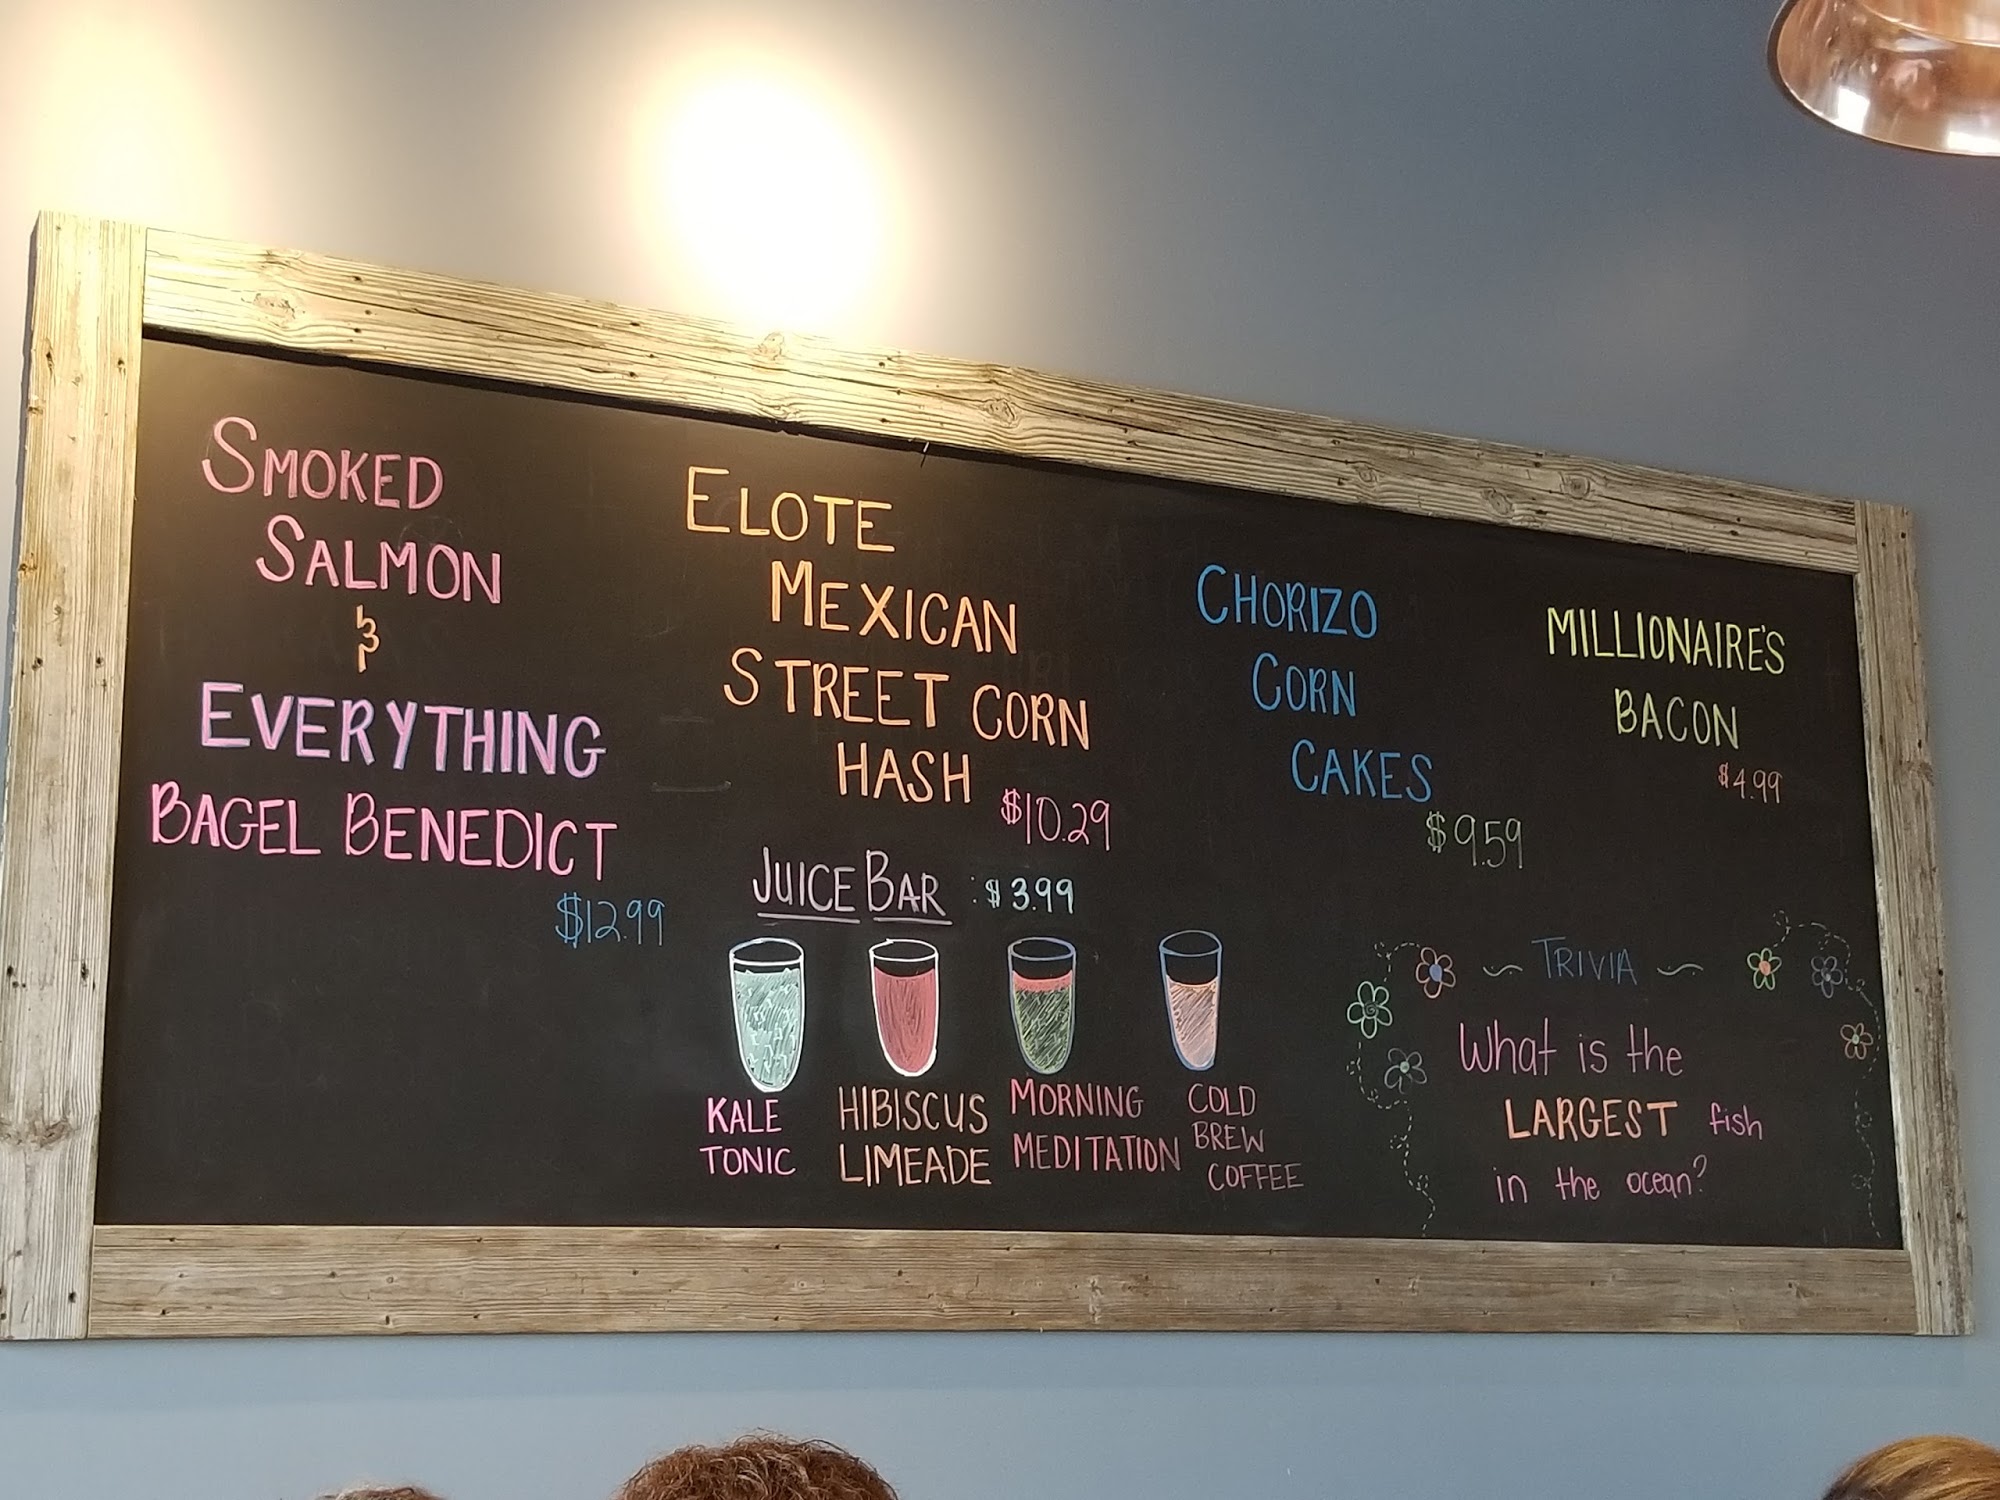 SMOKED
SALMON
&
EVERYTHING
BAGEL BENEDICT
$12.99
ELOTE
MEXICAN
STREET CORN
HASH
$10.29
CHORIZO
CORN
CAKES
$9.59
MILLIONAIRE'S
BACON
$4.99
JUICE BAR : $3.99
KALE
TONIC
HIBISCUS
LIMEADE
MORNING
MEDITATION
COLD
BREW
COFFEE
~ TRIVIA ~
What is the
LARGEST fish
in the ocean?